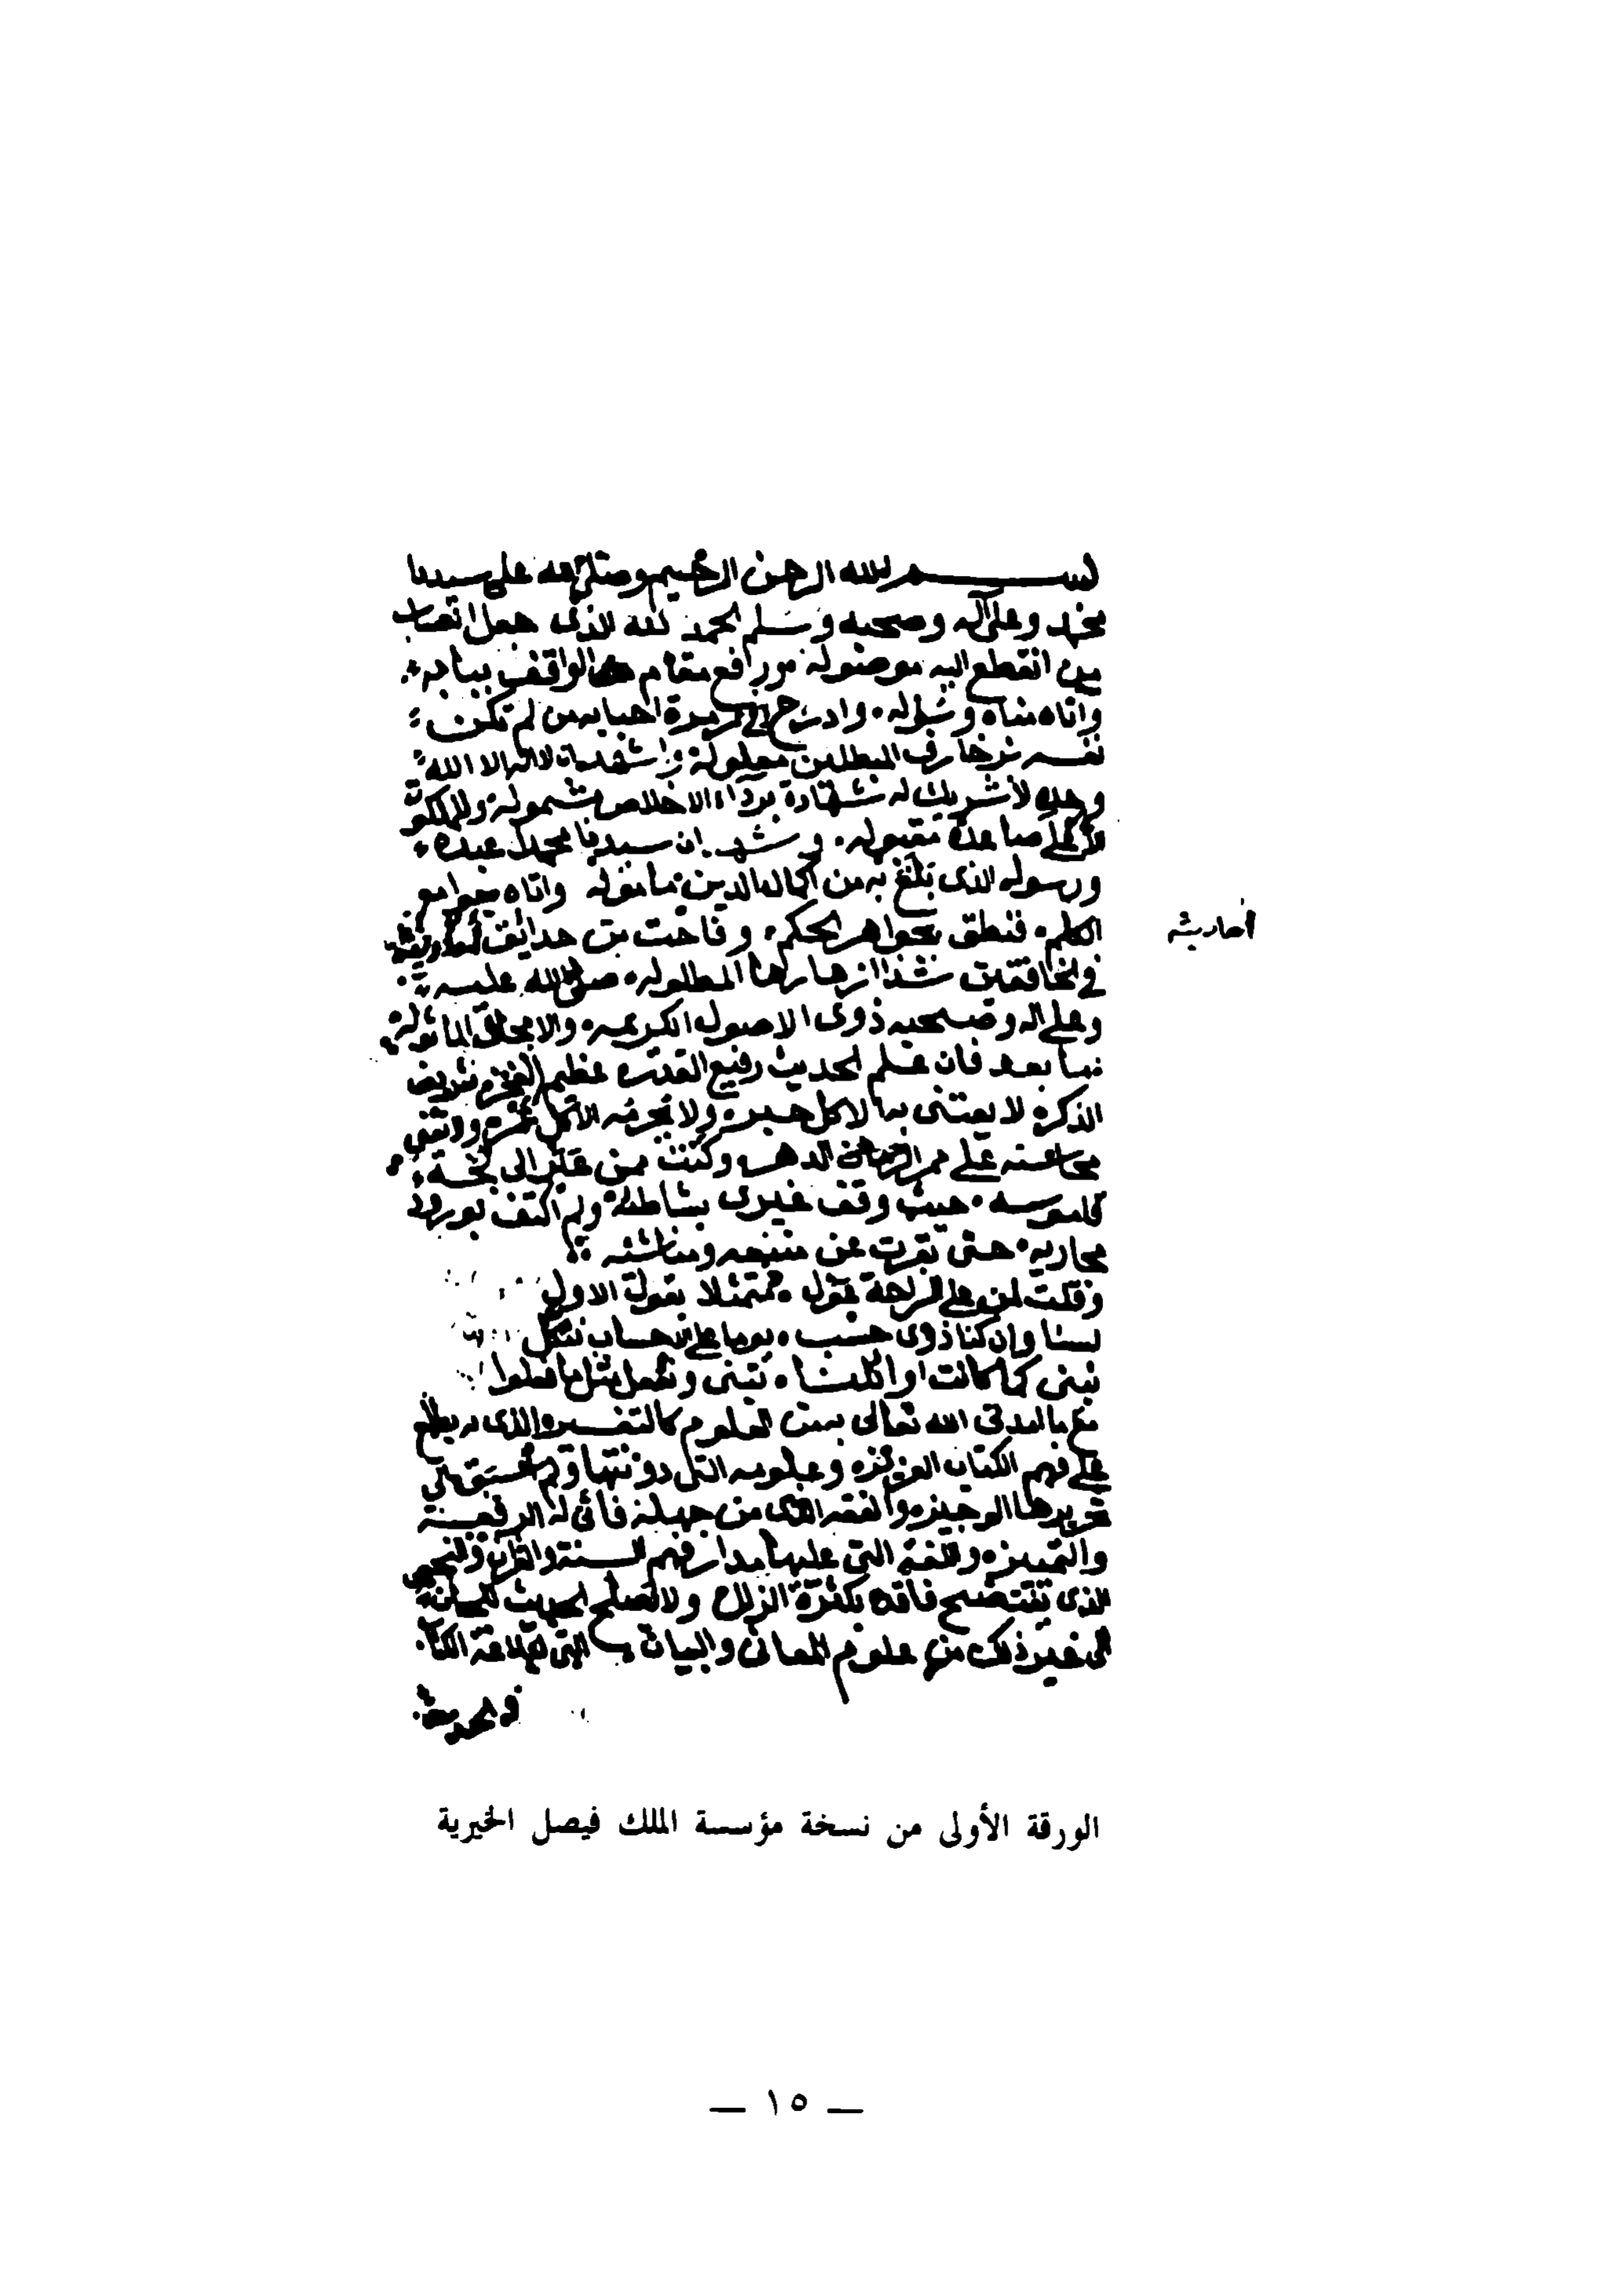 بســم الله الرحمن الرحيم وصلى الله على سيدنا
محمد وعلى آله وصحبه وسلم الحمد لله الذى جعل انقطاع
من انقطع اليه موصولة ورافع مقام الواقف ببابه
واتاه مناه وسوله وادرج فى زمرة احبابه من لم تكن
نفسه بزخارف المبطلين معلولة واشهد ان لا اله الا الله
وحده لا شريك له شهادة برداء الاخلاص مشمولة وللملكوت
الاعلى صاعدة مقبوله واشهد ان سيدنا محمدا عبده
ورسوله الذى بلغ به من اكمال الدين مامولة واتاه جوامع
الكلم فنطق بجواهر الحكم وفاحت من حدائق أحاديثه
أحاديثه
فى الخافقين شذا ازهارها المطلوله صلى الله عليه
وعلى اله وصحبه ذوى الاصول الكريمه والامجاد الماثولة
اما بعد فان علم الحديث رفيع القدر عظيم الفخر شريف
الذكر لا يعتنى به الا كل حبر ولا يحرمه الا كل غمر ولا تفنى
محاسنه على ممر الدهر وكنت ممن عبر الى لجة
قاموسه حيث وقف غيرى بشاطئه ولم اكتف بورود
مجاريه حتى بقرت عن منبعه ومناشئه
وقلت لمن على الراحة عول متمثلا بقول الاول
لسنا وان كنا ذوى حسب يوما على الاحساب نتكل
نبنى كما كانت اوائلنا تبنى ونفعل مثل ما فعلوا
مع ما امدنى الله تعالى به من العلوم كالتفسير الذى به يطلع
على فهم الكتاب العزيز وعلومه التى دونتها ولم اسبق الى
تحريرها الوجيز والفقه الذى من جهله فانى له الرفعة
والتمييز واللغة التى عليها مدار فهم السنة والقران والنحو
الذى يفتضح فاقده بكثرة الزلل ولا يصلح الحديث للحان
الى غير ذلك من علوم المعانى والبيان التى لبلاغة الكتاب
والحديث
الورقة الأولى من نسخة مؤسسة الملك فيصل الخيرية
— ١٥ —